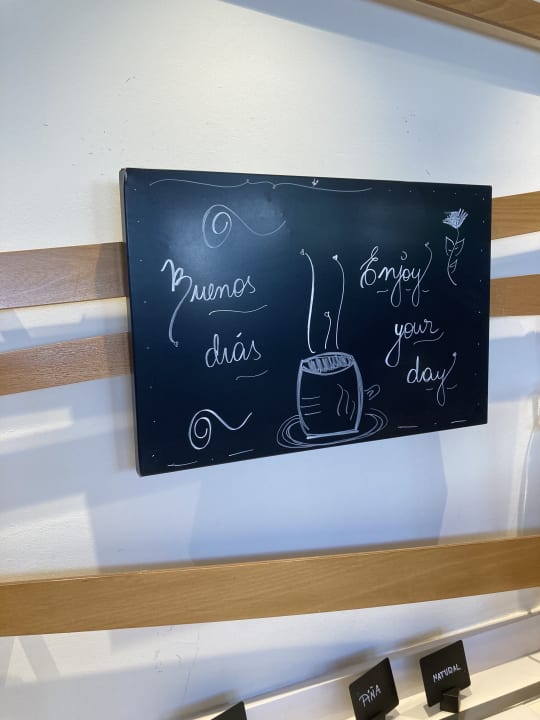 Buenos
diás
Enjoy
your
day
PIÑA
NATURAL